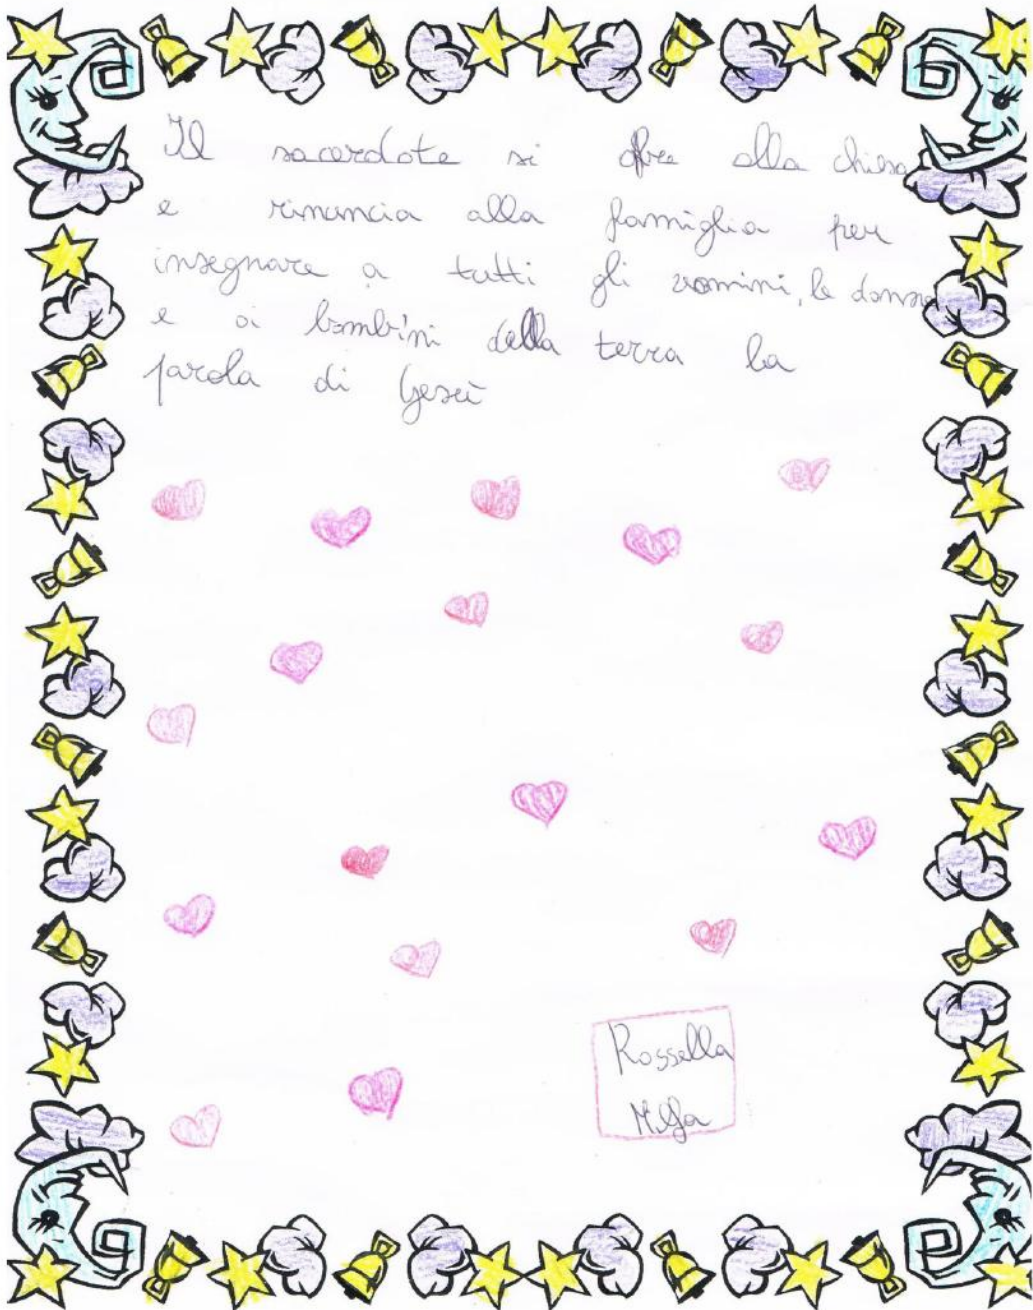 Il sacerdote si offre alla chiesa
e rinuncia alla famiglia per
insegnare a tutti gli uomini, le donne
e ai bambini della terra la
parola di Gesù
Rossella